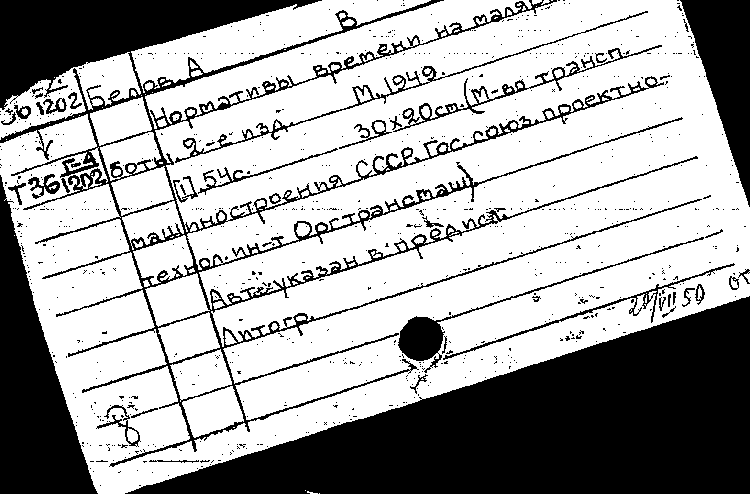 В
Зб Г-4/1202 Белов, А
Нормативы времени на маляр
Т36 Г-4/1202 боты. 2-е изд. М., 1949.
[1], 54с. 30х20см. (М-во трансп.
машиностроения СССР. Гос. союз. проектно-
технол. ин-т Оргтрансмаш).
Авт. указан в предисл.
Литогр.
29/VII 50 от
8